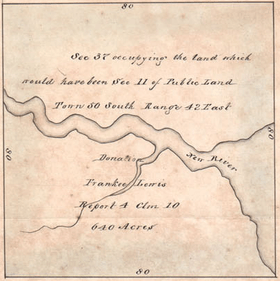 80
Sec 37 occupying the land which
would have been Sec 11 of Public Land
Town 50 South Range 42 East
80
80
New River
Donation
Frankee Lewis
Report 4 Clm 10
640 Acres
80